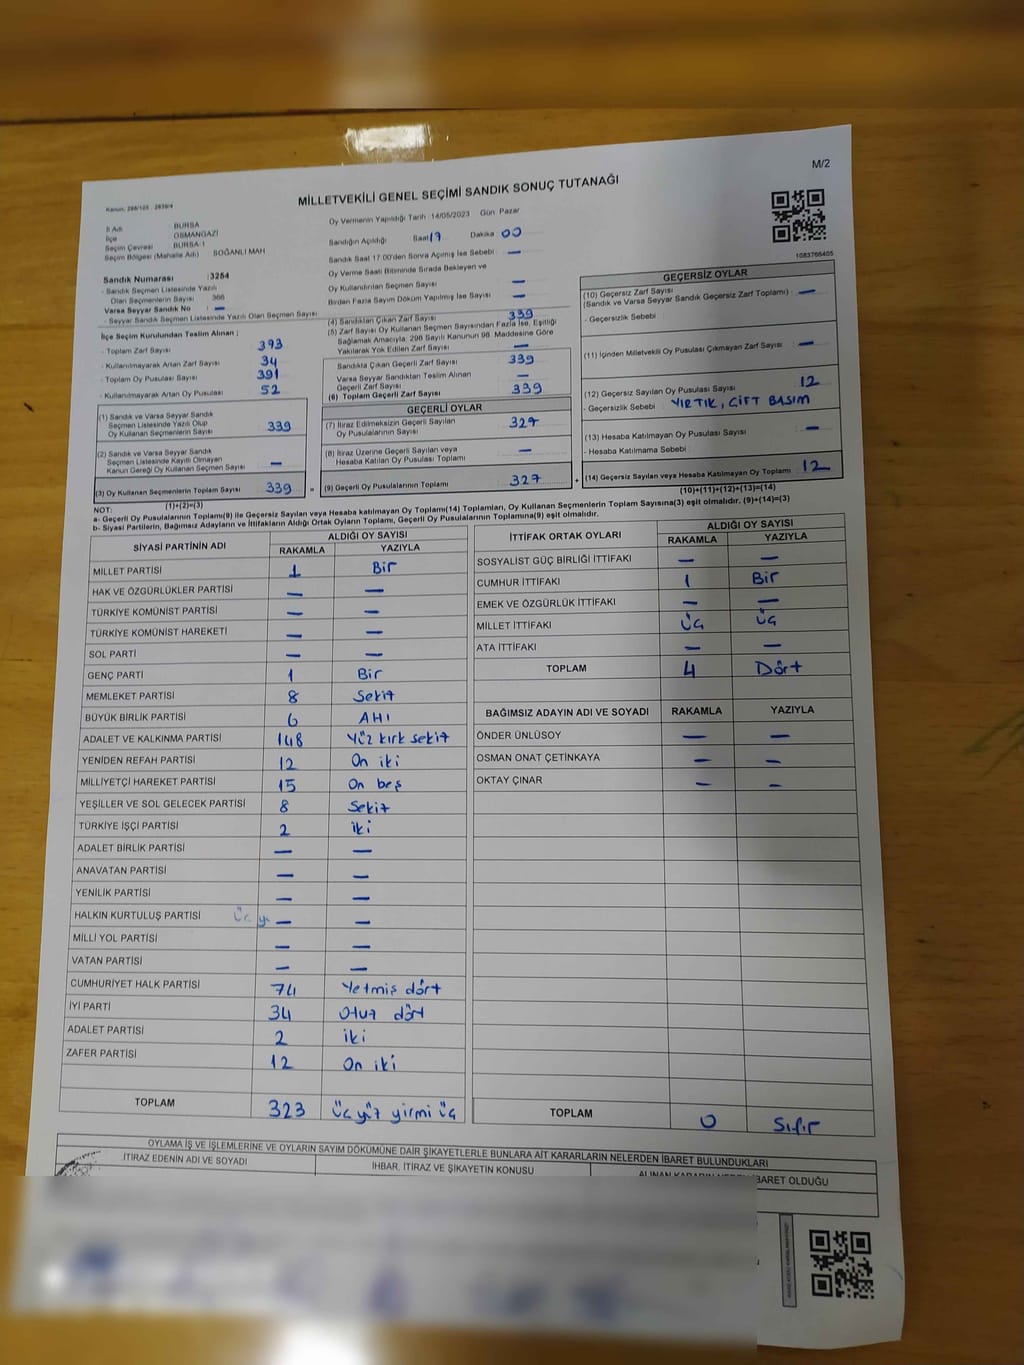 M/2
MİLLETVEKİLİ GENEL SEÇİMİ SANDIK SONUÇ TUTANAĞI
İl Adı : BURSA
İlçe : OSMANGAZİ
Seçim Çevresi : BURSA-1
Seçim Bölgesi (Mahalle Adı) SOĞANLI MAH
Sandık Numarası : 3254
- Sandık Seçmen Listesinde Yazılı
Olan Seçmenlerin Sayısı 366
Varsa Seyyar Sandık No : —
- Seyyar Sandık Seçmen Listesinde Yazılı Olan Seçmen Sayısı
Oy Vermenin Yapıldığı Tarih :14/05/2023 Gün: Pazar
Sandığın Açıldığı Saat 17 Dakika : 00
Sandık Saat 17.00'den Sonra Açılmış İse Sebebi : —
Oy Verme Saati Bitiminde Sırada Bekleyen ve
Oy Kullandırılan Seçmen Sayısı —
Birden Fazla Sayım Döküm Yapılmış İse Sayısı —
1083766405
İlçe Seçim Kurulundan Teslim Alınan ;
- Toplam Zarf Sayısı 393
- Kullanılmayarak Artan Zarf Sayısı 34
- Toplam Oy Pusulası Sayısı 391
- Kullanılmayarak Artan Oy Pusulası 52
(1) Sandık ve Varsa Seyyar Sandık
Seçmen Listesinde Yazılı Olup
Oy Kullanan Seçmenlerin Sayısı 339
(2) Sandık ve Varsa Seyyar Sandık
Seçmen Listesinde Kayıtlı Olmayan
Kanun Gereği Oy Kullanan Seçmen Sayısı —
(3) Oy Kullanan Seçmenlerin Toplam Sayısı 339
(1)+(2)=(3)
(4) Sandıktan Çıkan Zarf Sayısı 339
(5) Zarf Sayısı Oy Kullanan Seçmen Sayısından Fazla İse, Eşitliği
Sağlamak Amacıyla; 298 Sayılı Kanunun 98. Maddesine Göre
Yakılarak Yok Edilen Zarf Sayısı —
Sandıkta Çıkan Geçerli Zarf Sayısı 339
Varsa Seyyar Sandıktan Teslim Alınan
Geçerli Zarf Sayısı —
(6) Toplam Geçerli Zarf Sayısı 339
GEÇERLİ OYLAR
(7) İtiraz Edilmeksizin Geçerli Sayılan
Oy Pusulalarının Sayısı 327
(8) İtiraz Üzerine Geçerli Sayılan veya
Hesaba Katılan Oy Pusulası Toplamı —
= (9) Geçerli Oy Pusulalarının Toplamı 327 +
GEÇERSİZ OYLAR
(10) Geçersiz Zarf Sayısı
(Sandık ve Varsa Seyyar Sandık Geçersiz Zarf Toplamı) : —
- Geçersizlik Sebebi :
(11) İçinden Milletvekili Oy Pusulası Çıkmayan Zarf Sayısı —
(12) Geçersiz Sayılan Oy Pusulası Sayısı 12
- Geçersizlik Sebebi : YIRTIK, ÇİFT BASIM
(13) Hesaba Katılmayan Oy Pusulası Sayısı —
- Hesaba Katılmama Sebebi :
(14) Geçersiz Sayılan veya Hesaba Katılmayan Oy Toplamı 12
(10)+(11)+(12)+(13)=(14)
NOT:
a- Geçerli Oy Pusulalarının Toplamı(9) ile Geçersiz Sayılan veya Hesaba katılmayan Oy Toplamı(14) Toplamları, Oy Kullanan Seçmenlerin Toplam Sayısına(3) eşit olmalıdır. (9)+(14)=(3)
b- Siyasi Partilerin, Bağımsız Adayların ve İttifakların Aldığı Ortak Oyların Toplamı, Geçerli Oy Pusulalarının Toplamına(9) eşit olmalıdır.
SİYASİ PARTİNİN ADI ALDIĞI OY SAYISI
RAKAMLA YAZIYLA
MİLLET PARTİSİ 1 Bir
HAK VE ÖZGÜRLÜKLER PARTİSİ — —
TÜRKİYE KOMÜNİST PARTİSİ — —
TÜRKİYE KOMÜNİST HAREKETİ — —
SOL PARTİ — —
GENÇ PARTİ 1 Bir
MEMLEKET PARTİSİ 8 Sekiz
BÜYÜK BİRLİK PARTİSİ 6 Altı
ADALET VE KALKINMA PARTİSİ 148 Yüz kırk sekiz
YENİDEN REFAH PARTİSİ 12 On iki
MİLLİYETÇİ HAREKET PARTİSİ 15 On beş
YEŞİLLER VE SOL GELECEK PARTİSİ 8 Sekiz
TÜRKİYE İŞÇİ PARTİSİ 2 iki
ADALET BİRLİK PARTİSİ — —
ANAVATAN PARTİSİ — —
YENİLİK PARTİSİ — —
HALKIN KURTULUŞ PARTİSİ — —
MİLLİ YOL PARTİSİ — —
VATAN PARTİSİ — —
CUMHURİYET HALK PARTİSİ 74 Yetmiş dört
İYİ PARTİ 34 Otuz dört
ADALET PARTİSİ 2 iki
ZAFER PARTİSİ 12 On iki
TOPLAM 323 Üç yüz yirmi üç
İTTİFAK ORTAK OYLARI ALDIĞI OY SAYISI
RAKAMLA YAZIYLA
SOSYALİST GÜÇ BİRLİĞİ İTTİFAKI — —
CUMHUR İTTİFAKI 1 Bir
EMEK VE ÖZGÜRLÜK İTTİFAKI — —
MİLLET İTTİFAKI üç üç
ATA İTTİFAKI — —
TOPLAM 4 Dört
BAĞIMSIZ ADAYIN ADI VE SOYADI RAKAMLA YAZIYLA
ÖNDER ÜNLÜSOY — —
OSMAN ONAT ÇETİNKAYA — —
OKTAY ÇINAR — —
TOPLAM 0 Sıfır
OYLAMA İŞ VE İŞLEMLERİNE VE OYLARIN SAYIM DÖKÜMÜNE DAİR ŞİKAYETLERLE BUNLARA AİT KARARLARIN NELERDEN İBARET BULUNDUKLARI
İTİRAZ EDENİN ADI VE SOYADI İHBAR, İTİRAZ VE ŞİKAYETİN KONUSU ALINAN KARARIN NEDEN İBARET OLDUĞU